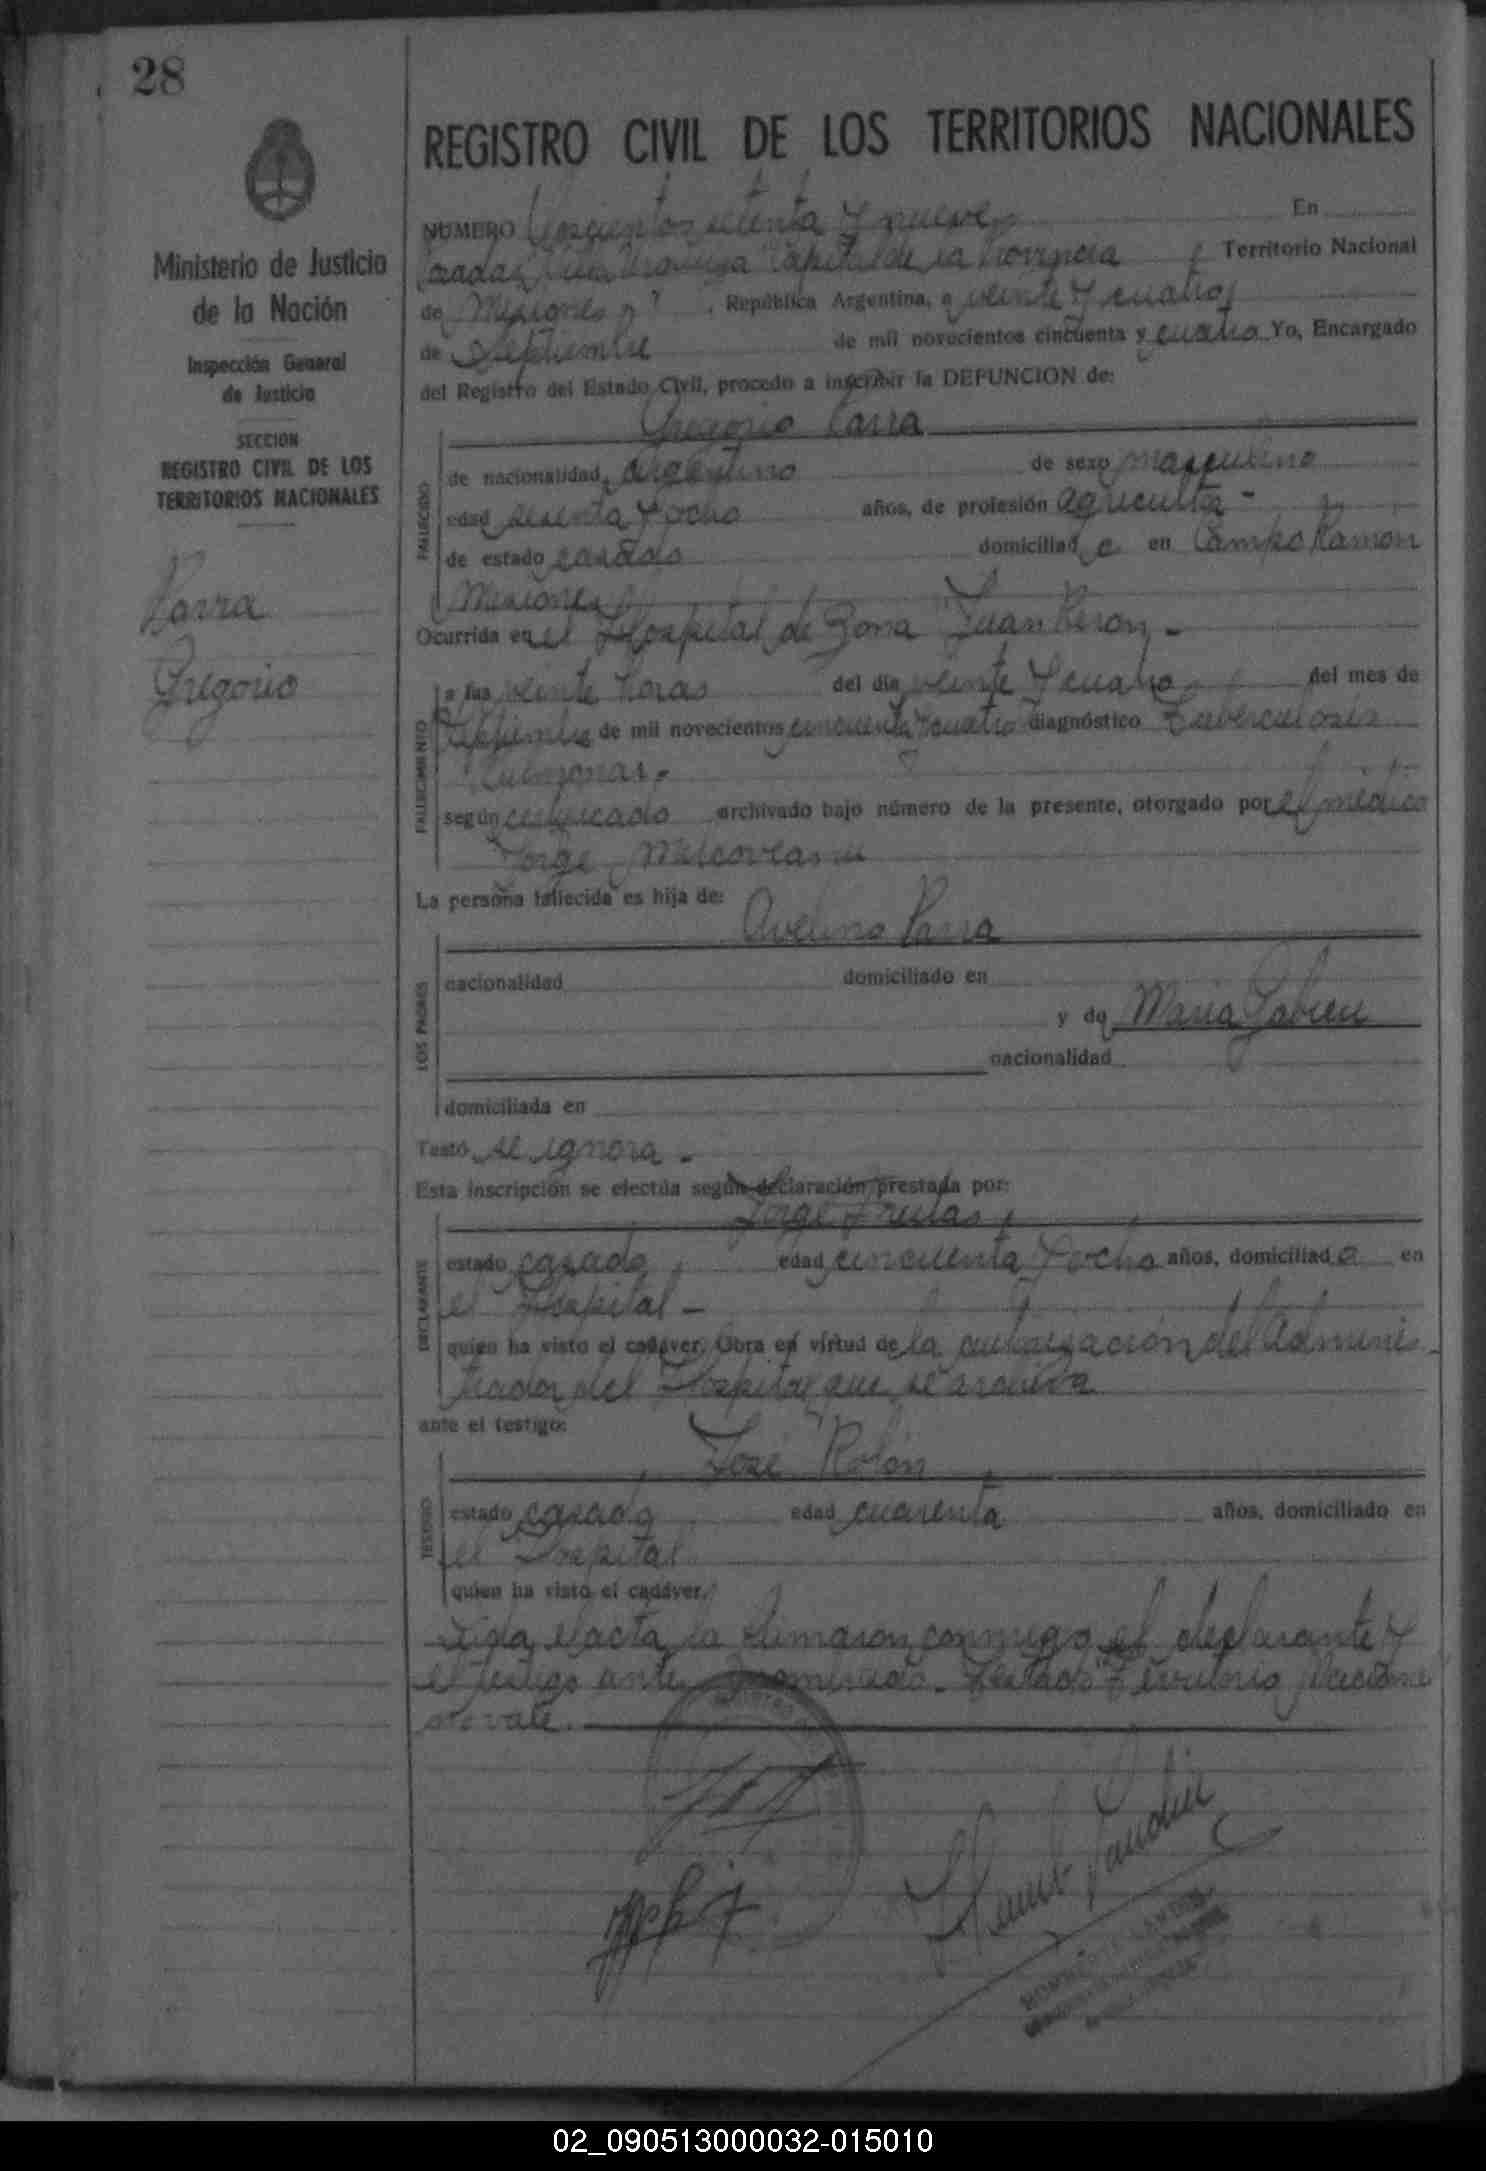 28
REGISTRO CIVIL DE LOS TERRITORIOS NACIONALES
Ministerio de Justicia
de la Nación
Inspección General
de Justicia
SECCION
REGISTRO CIVIL DE LOS
TERRITORIOS NACIONALES
Parra
Gregorio
NUMERO y nueve En
Posadas, Capital de la Provincia, Territorio Nacional
de Misiones, República Argentina, a veinte y cuatro
de Septiembre de mil novecientos cincuenta y cuatro Yo, Encargado
del Registro del Estado Civil, procedo a inscribir la DEFUNCION de:
Gregorio Parra
FALLECIDO
de nacionalidad argentino de sexo masculino
edad sesenta y ocho años, de profesión agricultor -
de estado casado domiciliado en Campo Ramon
Misiones
Ocurrida en el Hospital de Zona Juan Peron -
FALLECIMIENTO
a las veinte horas del día veinte y cuatro del mes de
Septiembre de mil novecientos cincuenta y cuatro diagnóstico Tuberculosis
Pulmonar.-
según certificado archivado bajo número de la presente, otorgado por el médico
Jorge
La persona fallecida es hija de:
Avelino Parra
LOS PADRES
nacionalidad domiciliado en
y de Maria
nacionalidad
domiciliada en
Testó se ignora -
Esta inscripción se efectúa según declaración prestada por:
Jorge Freitas
DECLARANTE
estado casado edad cincuenta y ocho años, domiciliado en
el Hospital -
quien ha visto el cadáver. Obra en virtud de la autorización del Adminis
trador del Hospital que se archiva
ante el testigo:
José Rolón
TESTIGO
estado casado edad cuarenta años, domiciliado en
el Hospital
quien ha visto el cadáver.
Leida el acta la firmaron conmigo el declarante y
el testigo ante nominado. Testado: Territorio Nacional
no vale.
02_090513000032-015010